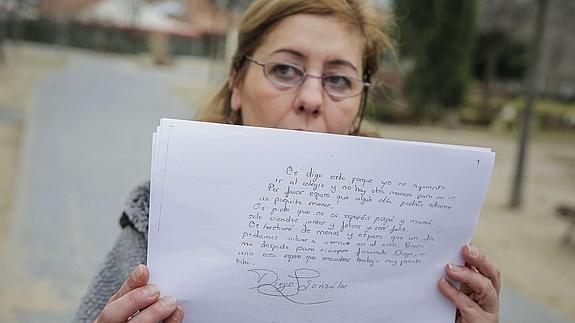 Os digo esto porque yo no aguanto
ir al colegio y no hay otra manera para no ir
Por favor espero que algún día podáis odiarme
un poquito menos.
Os pido que no os separéis papá y mamá,
solo viendoos juntos y felices yo seré feliz.
Os echaré de menos y espero que un día
podamos volver a vernos en el cielo. Bueno
me despido para siempre. Firmado Diego, o
una cosa espero que encuentres trabajo muy pronto
Tata.
Diego González